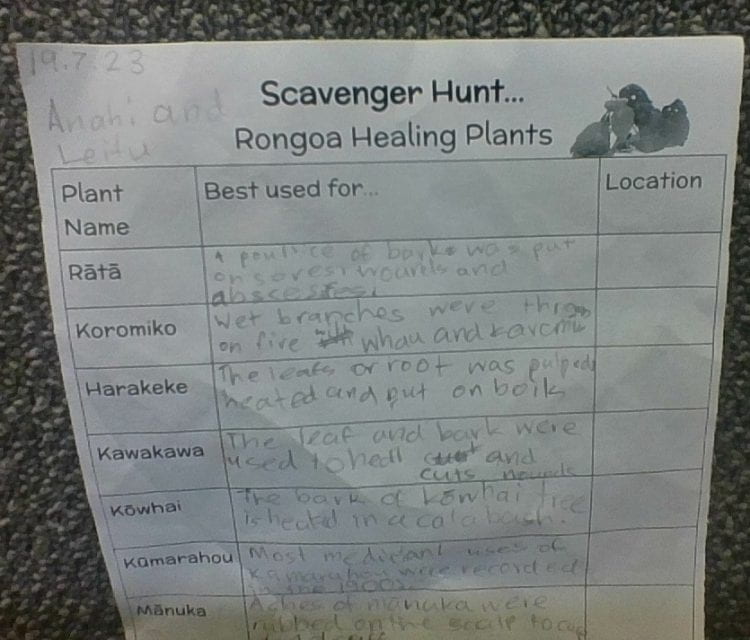 19.7.23
Anahi and
Leitu
Scavenger Hunt...
Rongoa Healing Plants
Plant
Name
Best used for...
Location
Rātā
A poultice of bark was put
on sores, wounds and
Koromiko
Wet branches were
on fire whau and
Harakeke
The leafs or root was pulped
heated and put on boils
Kawakawa
The leaf and bark were
used to heal and
cuts
Kōwhai
The bark of kōwhai tree
is heated in a calabash.
Kūmarahou
Most uses of
were recorded
in the 1900s
Mānuka
Ashes of mānuka were
rubbed on the scalp to